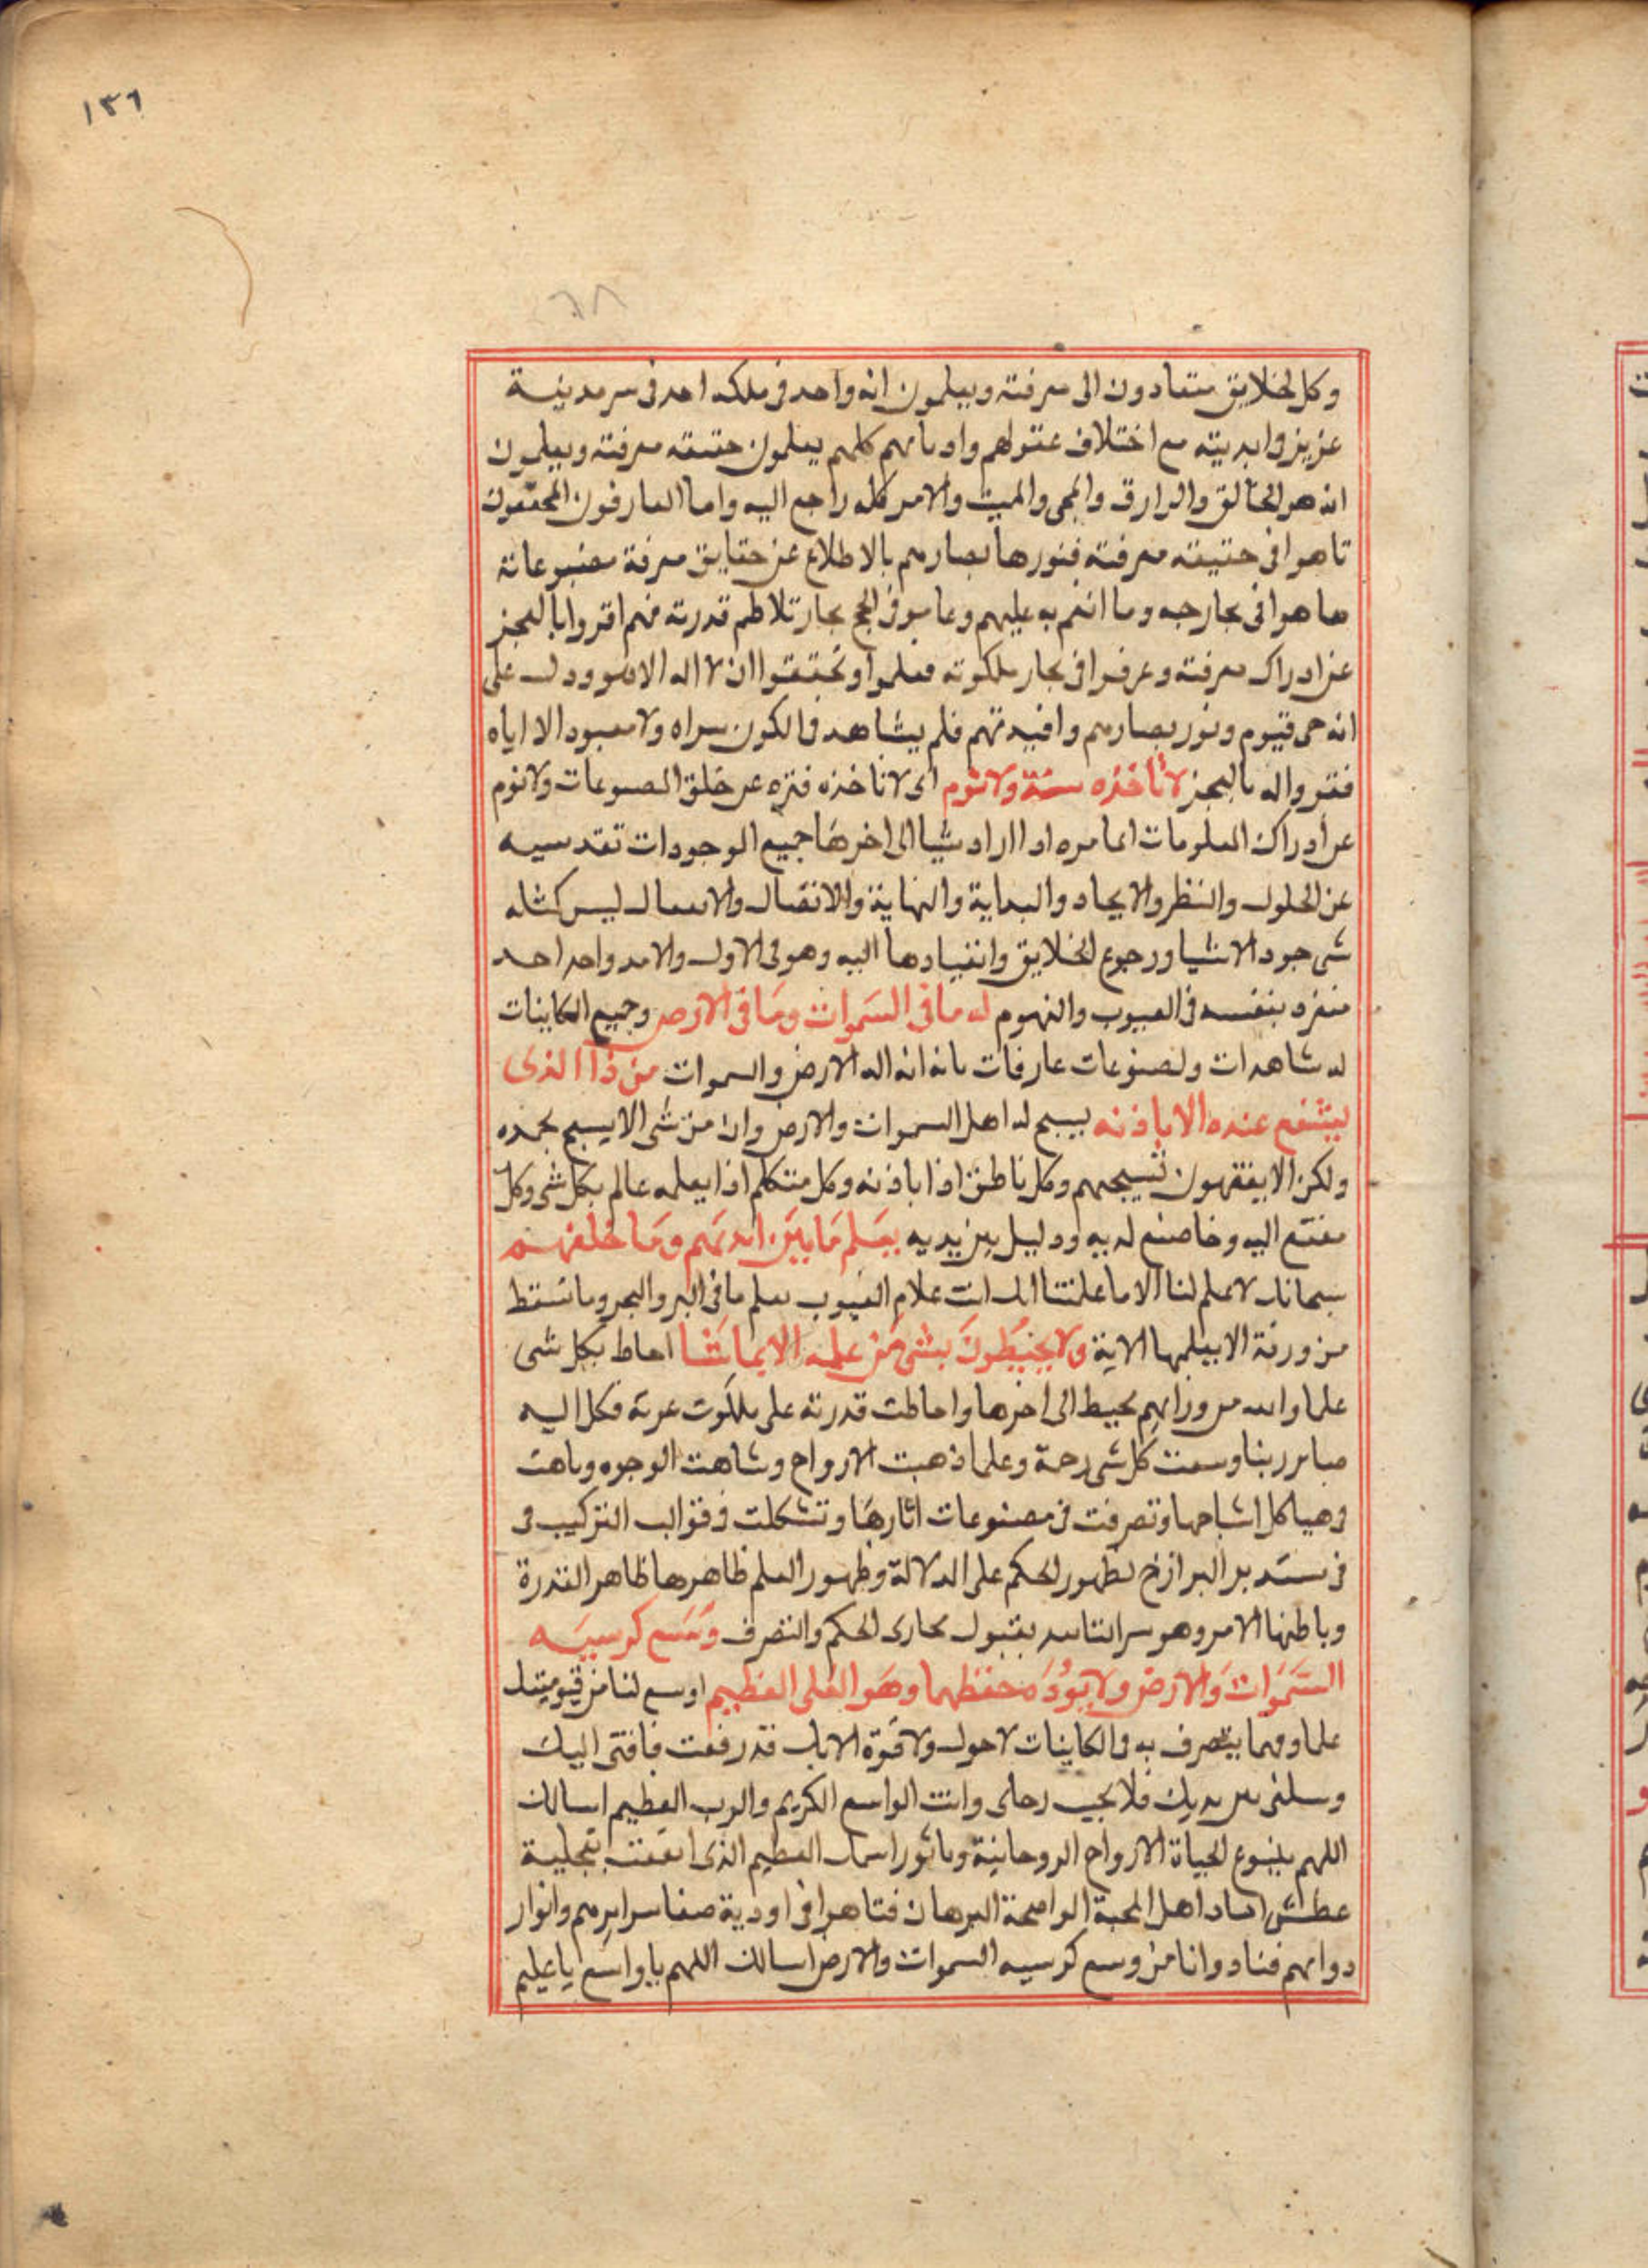 ١٣٦
٦٨
وكل الخلايق متعادون الى معرفته ويعلمون انه واحد فى ملكه احد فى سرمدينية
عزيز فى ابديته مع اختلاف عقولهم واديانهم كلهم يعلمون حقيقه معرفته ويعلمون
انه هو الخالق والرازق والمحى والمميت والامر كله راجع اليه واما العارفون المحققون
تاهوا فى حقيقته معرفته فنورها بصارهم بالاطلاع عن حقايق معرفة مصنوعاته
هاهوا فى بحار حبه وما انعم به عليهم وغاصو فى لجج بحار تلاطم قدرته فهم اقروا بالعجز
عن ادراك معرفته وغرقوا فى بحار ملكوته فعلموا وتحققوا ان لا اله الا هو ودل على
انه حى قيوم ونور بصارهم وافيدتهم فلم يشاهد فى الكون سواه ولا معبود الا اياه
فقروا له بالعجز لا تاخذه سنة ولا نوم اى لا تاخذه فتره عن خلق المصنوعات ولا نوم
عن ادراك المعلومات انما امره اذا اراد شيا الى اخرها جميع الموجودات تقدسيه
عن الحلول والنظر والايحاد والبداية والنهاية والانتقال والانفصال ليس كمثله
شى جود الاشيا ورجوع الخلايق وانقيادها اليه وهو فى الاول والامد واحد احد
منفرد بنفسه فى الغيوب والفهوم له ما فى السموات وما فى الارض وجميع الكاينات
له شاهدات ولمصنوعات عارفات بانه انه اله الارض والسموات من ذا الذى
يشفع عنده الا باذنه يسبح له اهل السموات والارض وان من شى الا يسبح بحمده
ولكن لا يفقهون تسبيحهم وكل ناطق اذا باذنه وكل متكلم اذا يعلمه عالم بكل شى وكل
مفتقر اليه وخاضع لديه وذليل بين يديه يعلم ما بين ايديهم وما خلفهم
سبحانك لا علم لنا الا ما علمتنا انك انت علام الغيوب يعلم ما فى البر والبحر وما تسقط
من ورقة الا يعلمها الاية ولا يحيطون بشى من علمه الا بما شا احاط بكل شى
علما والله من ورائهم محيط الى اخرها واحاطت قدرته على ملكوت عزته فكل اليه
صاير ربنا وسعت كل شى رحمة وعلما ذهبت الارواح وشاهت الوجوه وباهت
فى هياكل اشباحها وتصرفت فى مصنوعات اثارها وتشكلت فى قوالب التركيب فى
فى تدبير البرازخ لظهور الحكم على الدلالة وظهور العلم ظاهرها ظاهر القدرة
وباطنها الامر وهو سر انتاسه بقبول مجارى الحكم والتصرف وسع كرسيه
السموات والارض ولا يوده حفظهما وهو العلى العظيم اوسع لنا من قيوميتك
علما وفهما يتصرف به فى الكاينات لا حول ولا قوة الا بك قد رفعت فاقتى اليك
وسلنى بين يديك فلا يخيب رجائى وانت الواسع الكريم والرب العظيم اسالك
اللهم بينبوع الحياة الارواح الروحانية وباثور اسمك العظيم الذى بتجلية
عطش اكباد اهل المحبة الواضحة البرهان فتاهوا فى اودية صفا سرايرهم وانوار
دوابهم فنادوا انا من وسع كرسيه السموات والارض اسالك اللهم يا واسع يا عليم